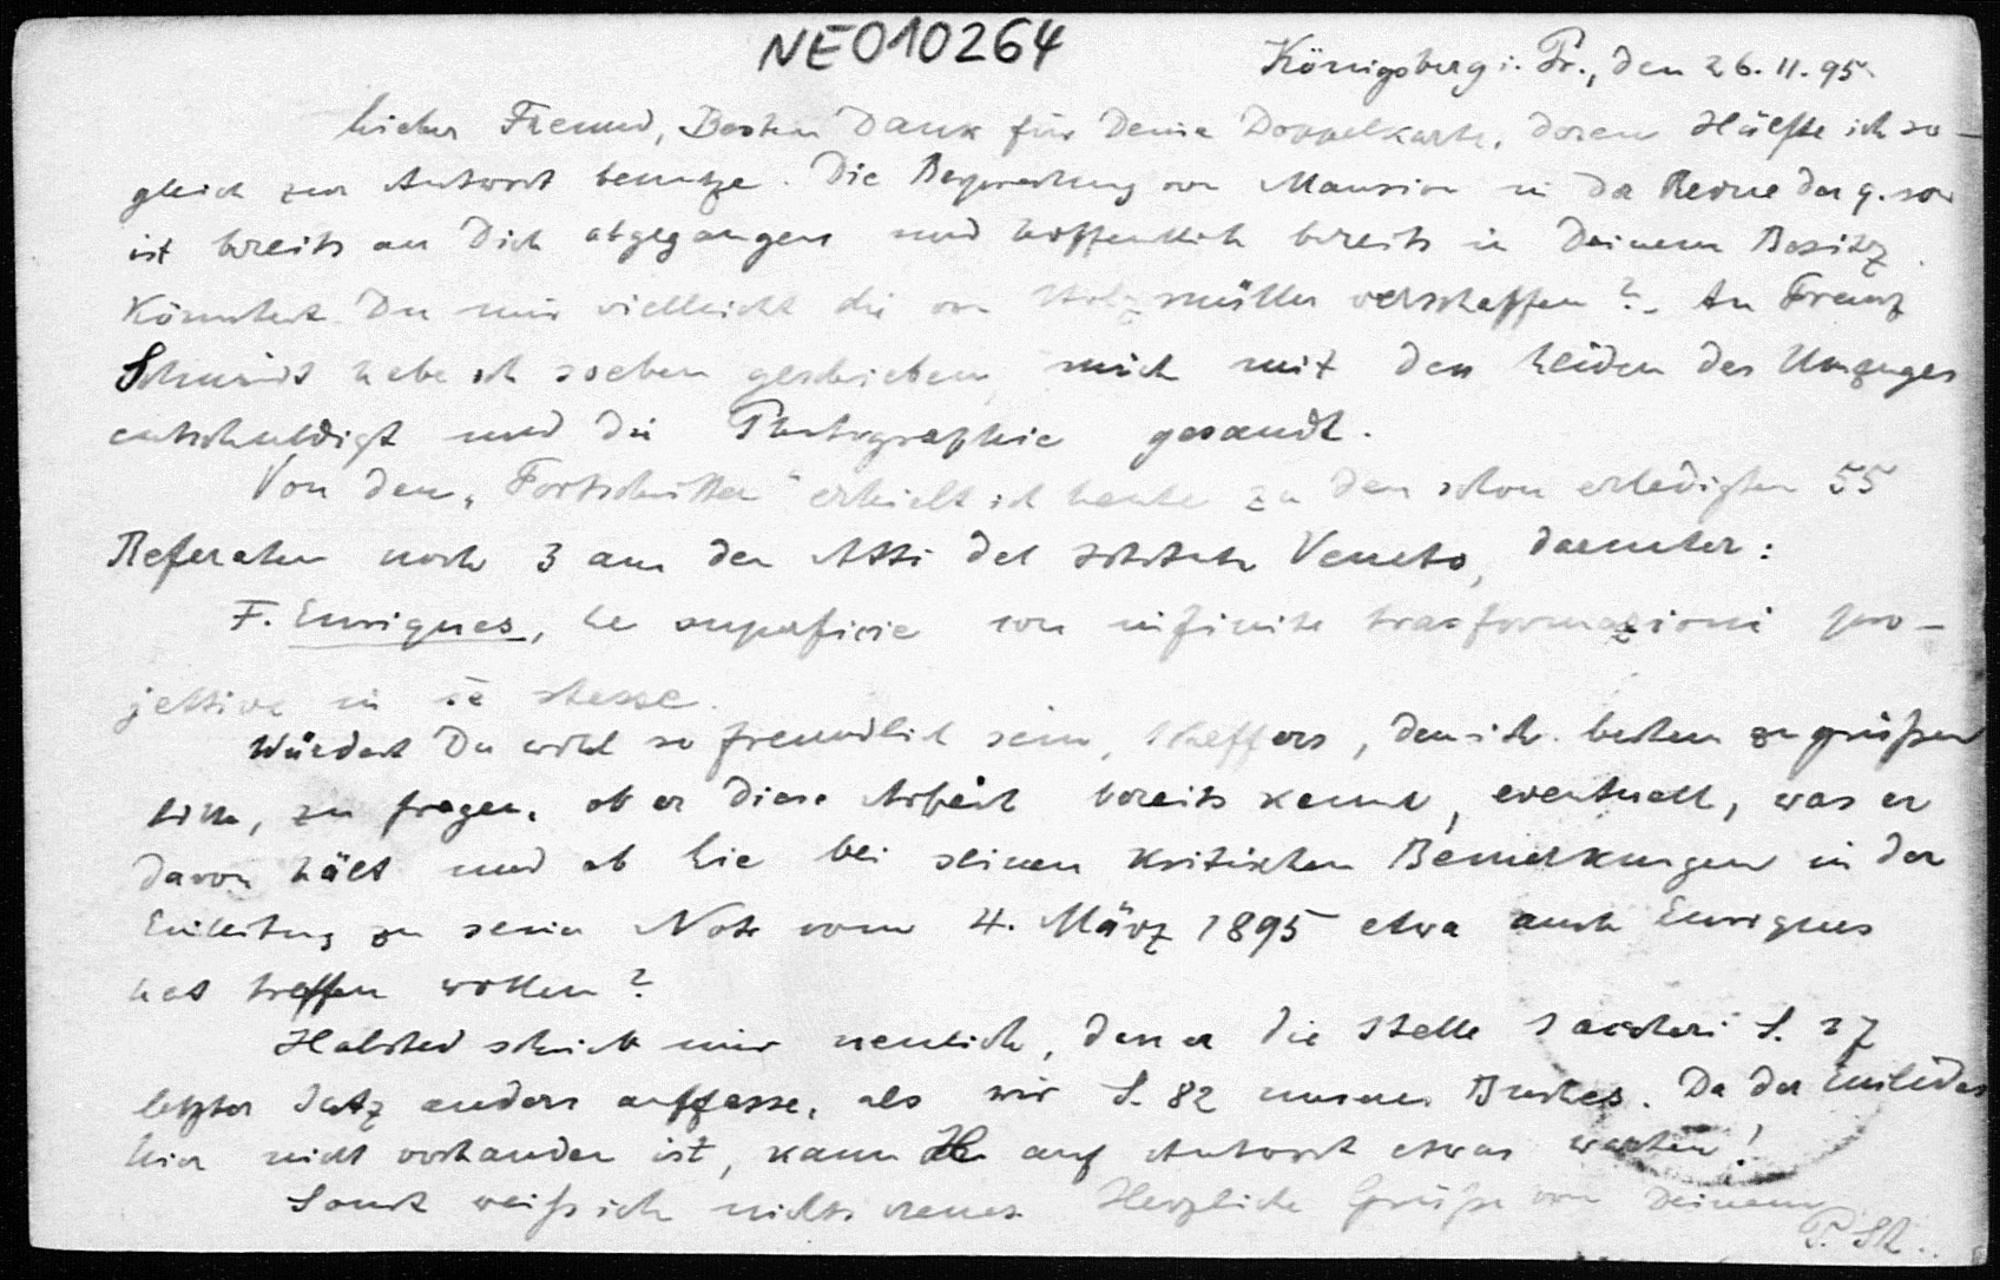 NE010264
Königsberg i. Pr., den 26.11.95.
Lieber Freund, Besten Dank für Deine Doppelkarte, deren Hälfte ich so-
gleich zur Antwort benutze. Die Besprechung von Mansion in der Revue des q. sc.
ist bereits an Dich abgegangen und hoffentlich bereits in Deinem Besitz.
Könntest Du mir vielleicht die von Holzmüller verschaffen? – An Franz
Schmidt habe ich soeben geschrieben, mich mit den Leiden des Umzuges
entschuldigt und die Photographie gesandt.
Von den „Fortschritten" erhielt ich heute zu den schon erledigten 55
Referaten noch 3 aus den Atti del Istituto Veneto, darunter:
F. Enriques, Le superficie con infinite trasformazioni pro-
jettive in sè stesse.
Würdest Du wohl so freundlich sein, Scheffers, den ich bestens zu grüßen
bitte, zu fragen, ob er diese Arbeit bereits kennt, eventuell, was er
davon hält und ob Lie bei seinen kritischen Bemerkungen in der
Einleitung zu seiner Note vom 4. März 1895 etwa auch Enriques
hat treffen wollen?
Halsted schrieb mir neulich, dass er die Stelle Saccheri S. 27
letzter Satz anders auffasse, als wir S. 82 unseres Buches. Da der Euklides
hier nicht vorhanden ist, kann H. auf Antwort etwas warten!
Sonst weiß ich nichts neues. Herzliche Grüße von Deinem
P. St.